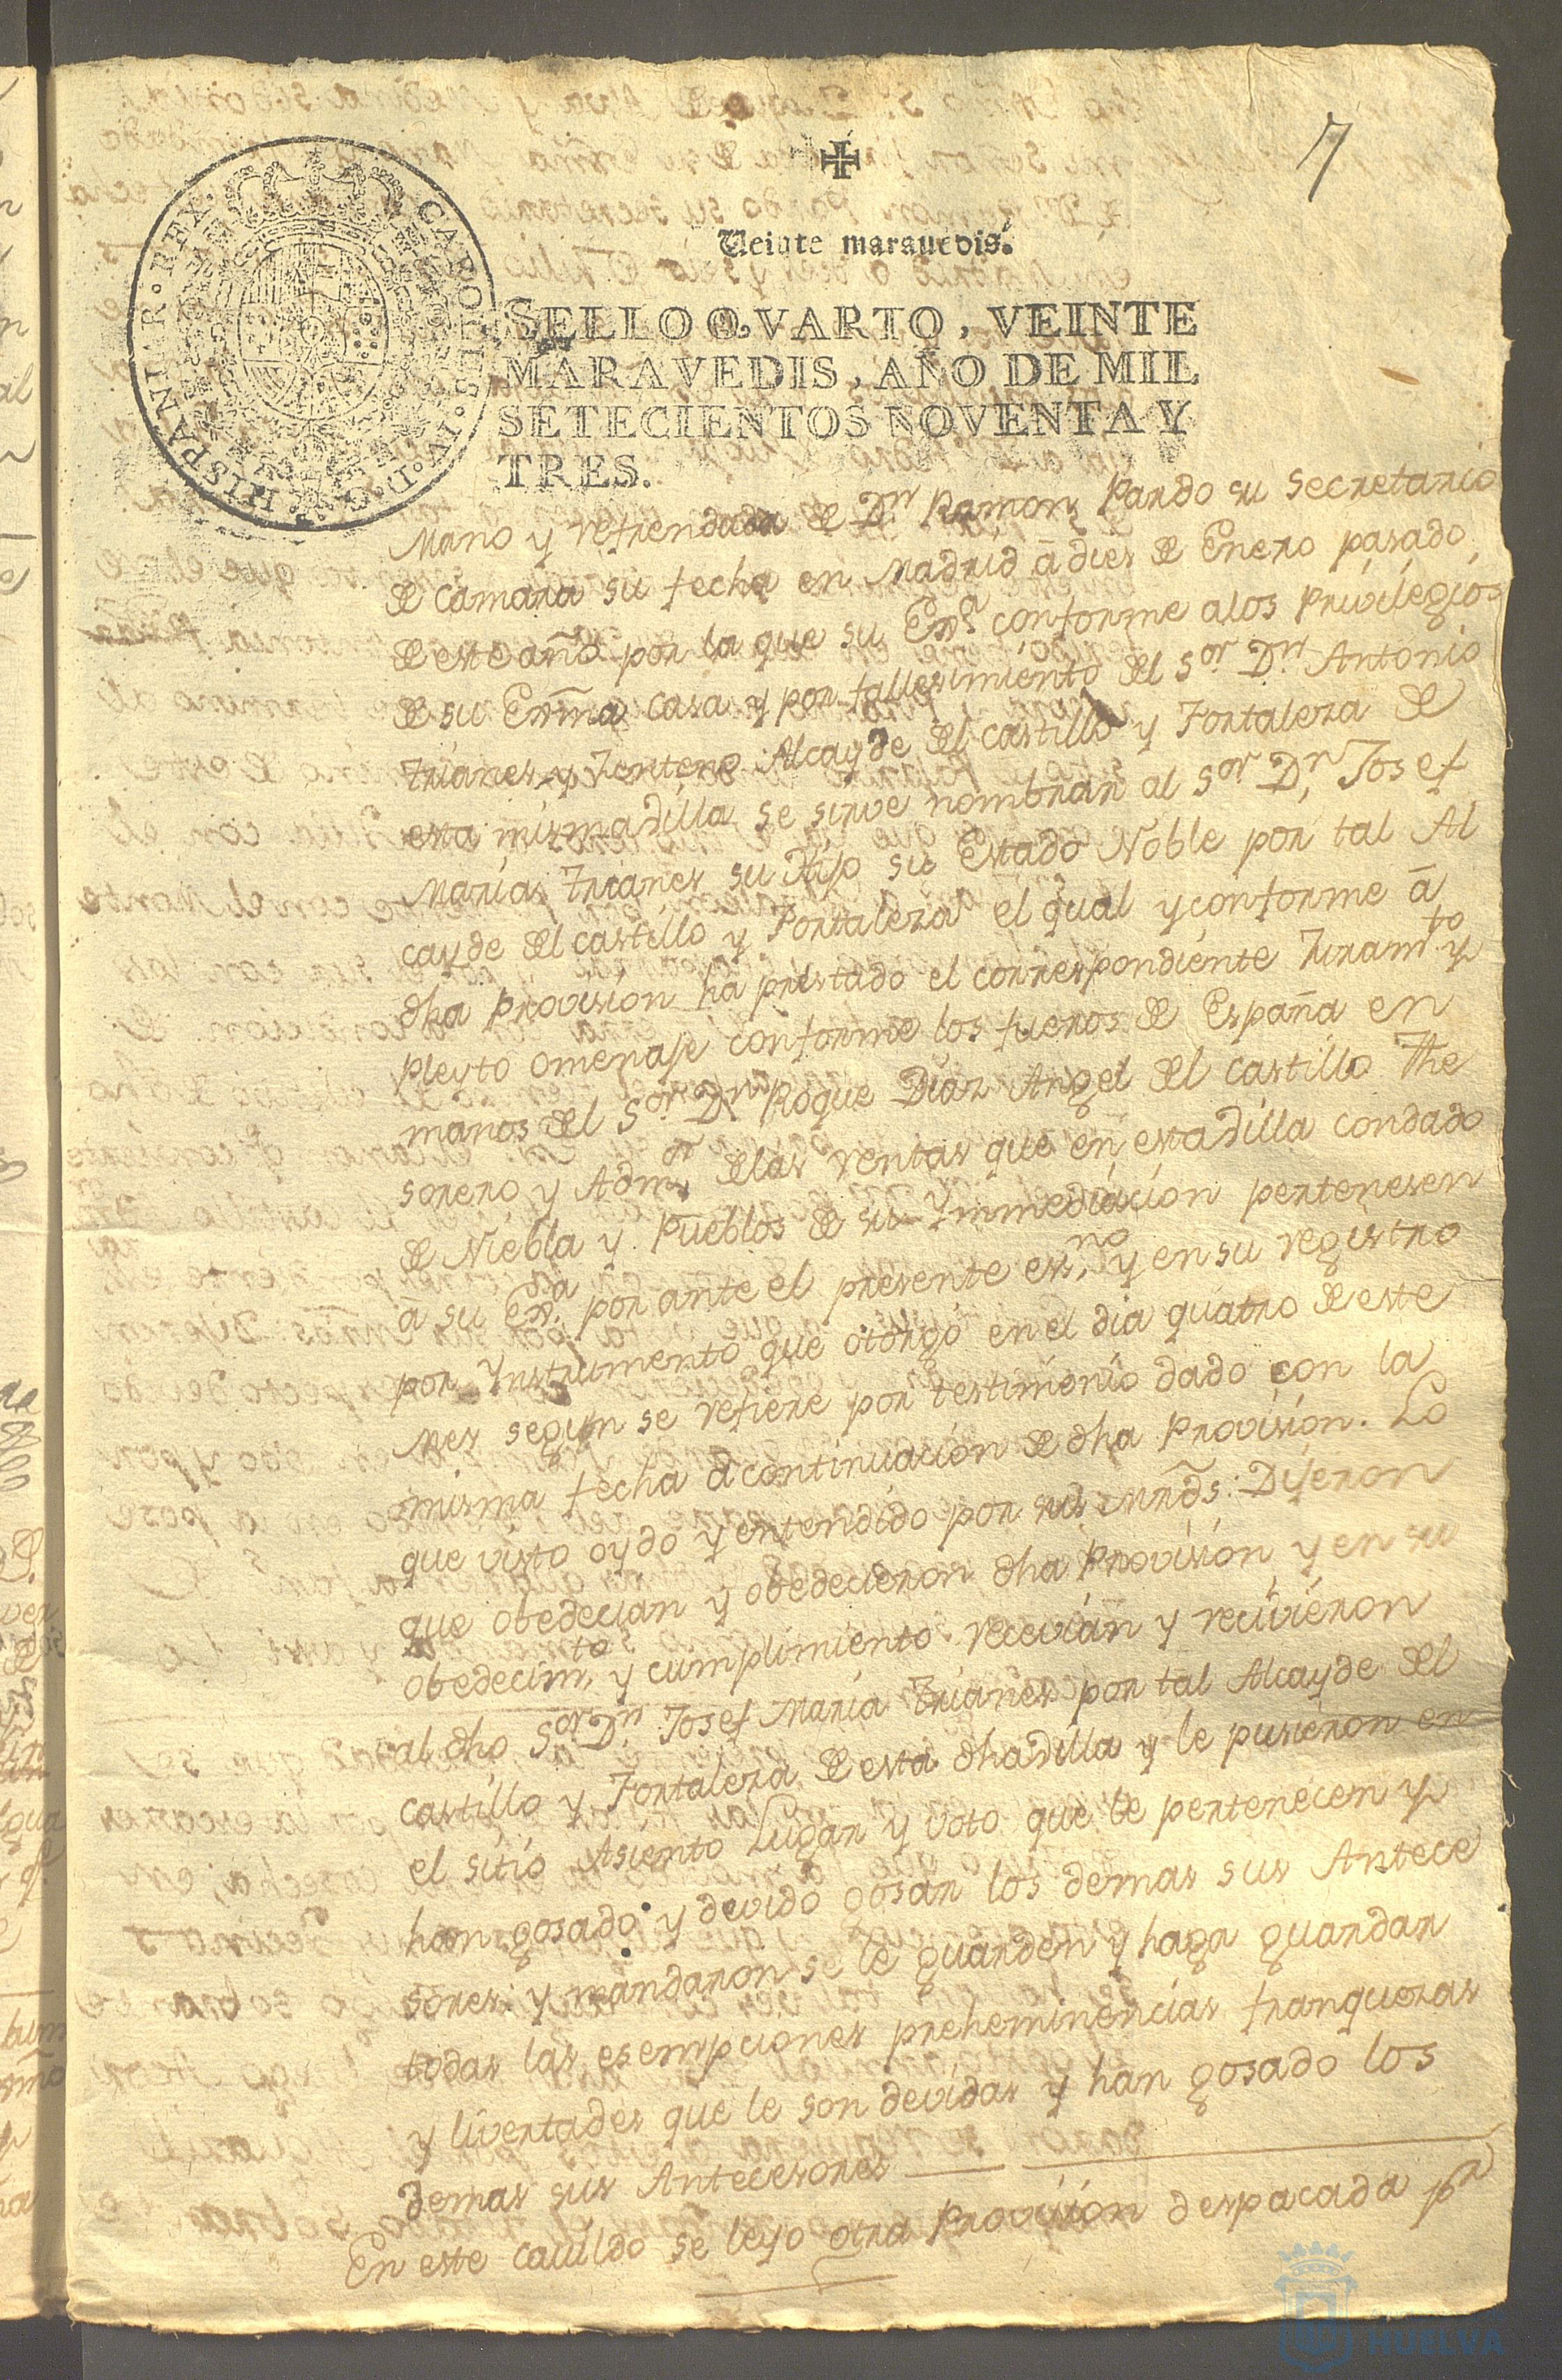 7
Veinte marauedis.
CAROLUS. IV. D. G. HISPANIAR. REX.
SELLO QVARTO, VEINTE
MARAVEDIS, AÑO DE MIL
SETECIENTOS NOVENTA Y
TRES.
Mano y refrendada de Dn Ramon Pardo su Secretario
de camara su fecha en Madrid â dies de Enero pasado
de este año por la que su Exa conforme a los Privilegios
de su Exma casa y por fallesimiento del Sor Dn Antonio
Trianes y Zenteno Alcayde del castillo y Fortaleza de
esta misma Villa se sirve nombrar al Sor Dn Josef
Maria Trianes su Hijo su Estado Noble por tal Al
cayde del castillo y Fortaleza el qual y conforme â
dha Provision ha prestado el correspondiente Juramto y
Pleyto omenaje conforme los fueros de España en
manos del Sor Dn Roque Diaz Angel del Castillo The
sorero y Admor de las rentas que en esta Villa condado
de Niebla y Pueblos de su Ynmediacion pertenesen
â su Exa por ante el presente esno y en su registro
por Ynstrumento que otorgó en el dia quatro de este
Mes segun se refiere por testimonio dado con la
misma fecha a continuacion de dha Provision. Lo
que visto oydo y entendido por sus Mrds: Dijeron
que obedecian y obedecieron dha Provision y en su
obedecimto y cumplimiento recevian y recivieron
al dho Sor Dn Josef Maria Trianes por tal Alcayde del
castillo y Fortaleza de esta dha Villa y le pusieron en
el sitio Asiento Lugar y voto que le pertenecen y
han gosado y devido gosar los demas sus Antece
sores: y mandaron se le guarden y haga guardar
todas las esempciones preheminencias franquezas
y livertades que le son devidas y han gosado los
demas sus Antecesores
En este cavildo se leyo otra Provision despacada pr
HUELVA